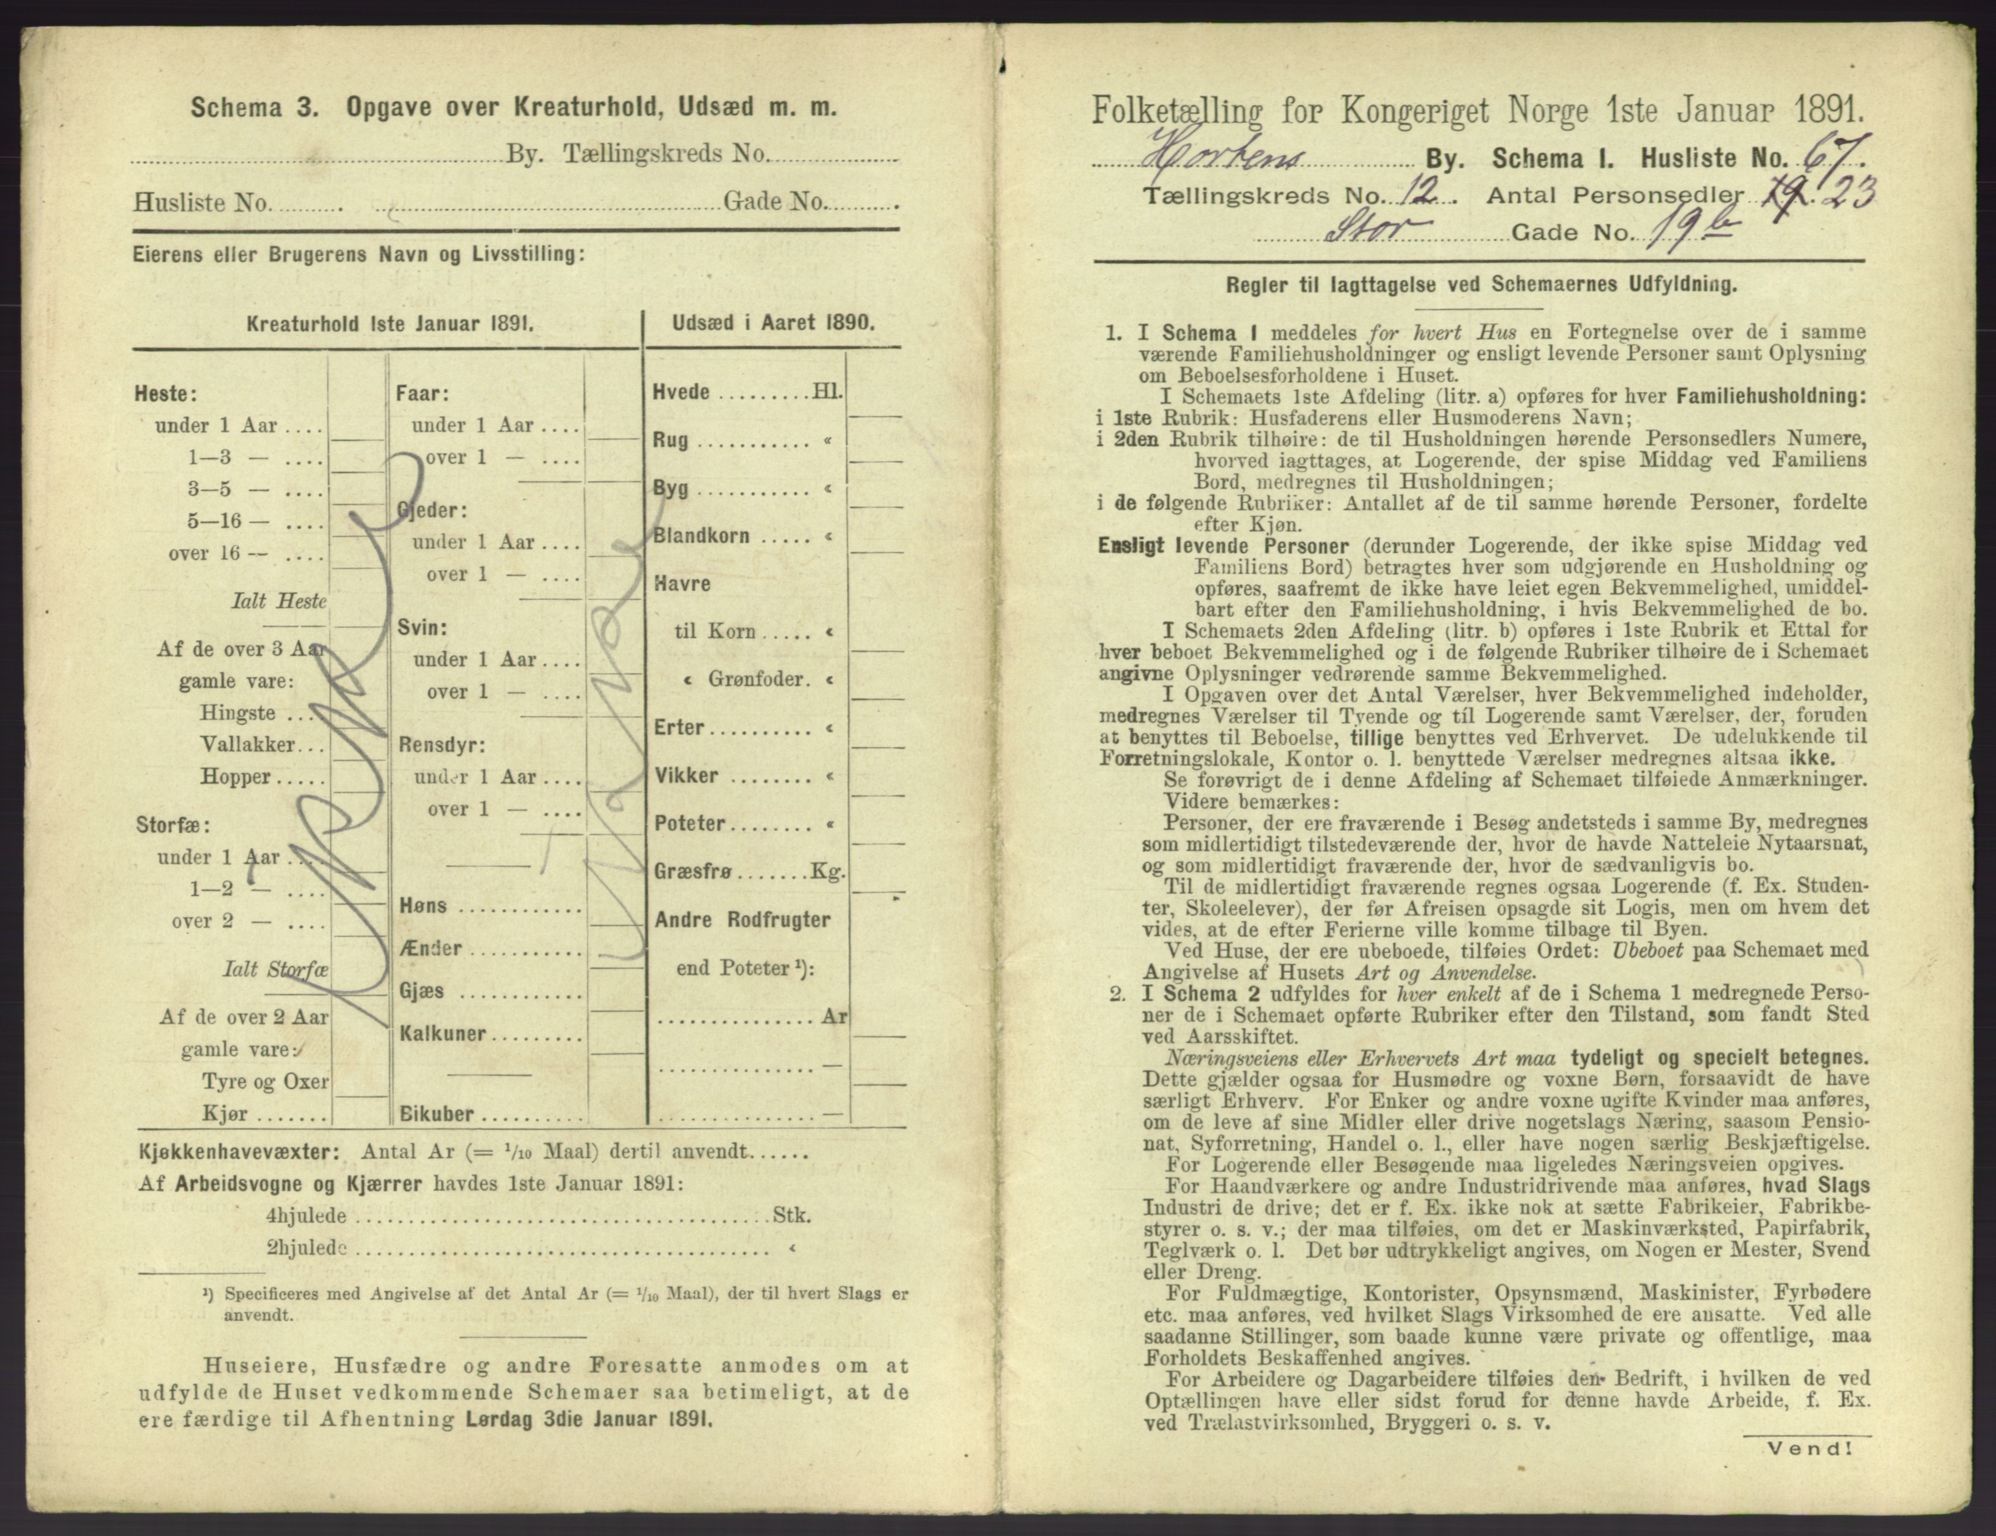 Schema 3. Opgave over Kreaturhold, Udsæd m. m.
By. Tællingskreds No.
Husliste No. Gade No.
Eierens eller Brugerens Navn og Livsstilling:
Kreaturhold 1ste Januar 1891.
Heste:
under 1 Aar ....
1—3 — ....
3—5 — ....
5—16 — ....
over 16 — ....
Ialt Heste
Af de over 3 Aar
gamle vare:
Hingste ...
Vallakker...
Hopper.....
Storfæ:
under 1 Aar ...
1—2 — ....
over 2 — ....
Ialt Storfæ
Af de over 2 Aar
gamle vare:
Tyre og Oxer
Kjør .......
Faar:
under 1 Aar ....
over 1 — ....
Gjeder:
under 1 Aar....
over 1 — ....
Svin:
under 1 Aar....
over 1 — ....
Rensdyr:
under 1 Aar ....
over 1 — ....
Høns ............
Ænder...........
Gjæs ............
Kalkuner.........
Bikuber ..........
Udsæd i Aaret 1890.
Hvede .........Hl.
Rug ........... «
Byg ........... «
Blandkorn ..... «
Havre
til Korn ..... «
« Grønfoder. «
Erter.......... «
Vikker ........ «
Poteter........ «
Græsfrø.......Kg.
Andre Rodfrugter
end Poteter ¹):
............... Ar
............... —
............... —
Kjøkkenhavevæxter: Antal Ar (= 1/10 Maal) dertil anvendt......
Af Arbeidsvogne og Kjærrer havdes 1ste Januar 1891:
4hjulede ......................................Stk.
2hjulede ...................................... «
¹) Specificeres med Angivelse af det Antal Ar (= 1/10 Maal), der til hvert Slags er
anvendt.
Huseiere, Husfædre og andre Foresatte anmodes om at
udfylde de Huset vedkommende Schemaer saa betimeligt, at de
ere færdige til Afhentning Lørdag 3die Januar 1891.
Folketælling for Kongeriget Norge 1ste Januar 1891.
Hortens By. Schema 1. Husliste No. 67.
Tællingskreds No. 12. Antal Personsedler 19. 23
Stor Gade No. 19b
Regler til Iagttagelse ved Schemaernes Udfyldning.
1. I Schema 1 meddeles for hvert Hus en Fortegnelse over de i samme
værende Familiehusholdninger og ensligt levende Personer samt Oplysning
om Beboelsesforholdene i Huset.
I Schemaets 1ste Afdeling (litr. a) opføres for hver Familiehusholdning:
i 1ste Rubrik: Husfaderens eller Husmoderens Navn;
i 2den Rubrik tilhøire: de til Husholdningen hørende Personsedlers Numere,
hvorved iagttages, at Logerende, der spise Middag ved Familiens
Bord, medregnes til Husholdningen;
i de følgende Rubriker: Antallet af de til samme hørende Personer, fordelte
efter Kjøn.
Ensligt levende Personer (derunder Logerende, der ikke spise Middag ved
Familiens Bord) betragtes hver som udgjørende en Husholdning og
opføres, saafremt de ikke have leiet egen Bekvemmelighed, umiddel-
bart efter den Familiehusholdning, i hvis Bekvemmelighed de bo.
I Schemaets 2den Afdeling (litr. b) opføres i 1ste Rubrik et Ettal for
hver beboet Bekvemmelighed og i de følgende Rubriker tilhøire de i Schemaet
angivne Oplysninger vedrørende samme Bekvemmelighed.
I Opgaven over det Antal Værelser, hver Bekvemmelighed indeholder,
medregnes Værelser til Tyende og til Logerende samt Værelser, der, foruden
at benyttes til Beboelse, tillige benyttes ved Erhvervet. De udelukkende til
Forretningslokale, Kontor o. l. benyttede Værelser medregnes altsaa ikke.
Se forøvrigt de i denne Afdeling af Schemaet tilføiede Anmærkninger.
Videre bemærkes:
Personer, der ere fraværende i Besøg andetsteds i samme By, medregnes
som midlertidigt tilstedeværende der, hvor de havde Natteleie Nytaarsnat,
og som midlertidigt fraværende der, hvor de sædvanligvis bo.
Til de midlertidigt fraværende regnes ogsaa Logerende (f. Ex. Studen-
ter, Skoleelever), der før Afreisen opsagde sit Logis, men om hvem det
vides, at de efter Ferierne ville komme tilbage til Byen.
Ved Huse, der ere ubeboede, tilføies Ordet: Ubeboet paa Schemaet med
Angivelse af Husets Art og Anvendelse.
2. I Schema 2 udfyldes for hver enkelt af de i Schema 1 medregnede Perso-
ner de i Schemaet opførte Rubriker efter den Tilstand, som fandt Sted
ved Aarsskiftet.
Næringsveiens eller Erhvervets Art maa tydeligt og specielt betegnes.
Dette gjælder ogsaa for Husmødre og voxne Børn, forsaavidt de have
særligt Erhverv. For Enker og andre voxne ugifte Kvinder maa anføres,
om de leve af sine Midler eller drive nogetslags Næring, saasom Pensio-
nat, Syforretning, Handel o. l., eller have nogen særlig Beskjæftigelse.
For Logerende eller Besøgende maa ligeledes Næringsveien opgives.
For Haandværkere og andre Industridrivende maa anføres, hvad Slags
Industri de drive; det er f. Ex. ikke nok at sætte Fabrikeier, Fabrikbe-
styrer o. s. v.; der maa tilføies, om det er Maskinværksted, Papirfabrik,
Teglværk o. l. Det bør udtrykkeligt angives, om Nogen er Mester, Svend
eller Dreng.
For Fuldmægtige, Kontorister, Opsynsmænd, Maskinister, Fyrbødere
etc. maa anføres, ved hvilket Slags Virksomhed de ere ansatte. Ved alle
saadanne Stillinger, som baade kunne være private og offentlige, maa
Forholdets Beskaffenhed angives.
For Arbeidere og Dagarbeidere tilføies den Bedrift, i hvilken de ved
Optællingen have eller sidst forud for denne havde Arbeide, f. Ex.
ved Trælastvirksomhed, Bryggeri o. s. v.
Vend!